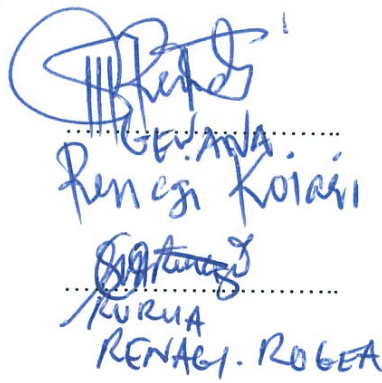 GEUANA
Renagi Koiari
KURUA
RENAGI. ROGEA